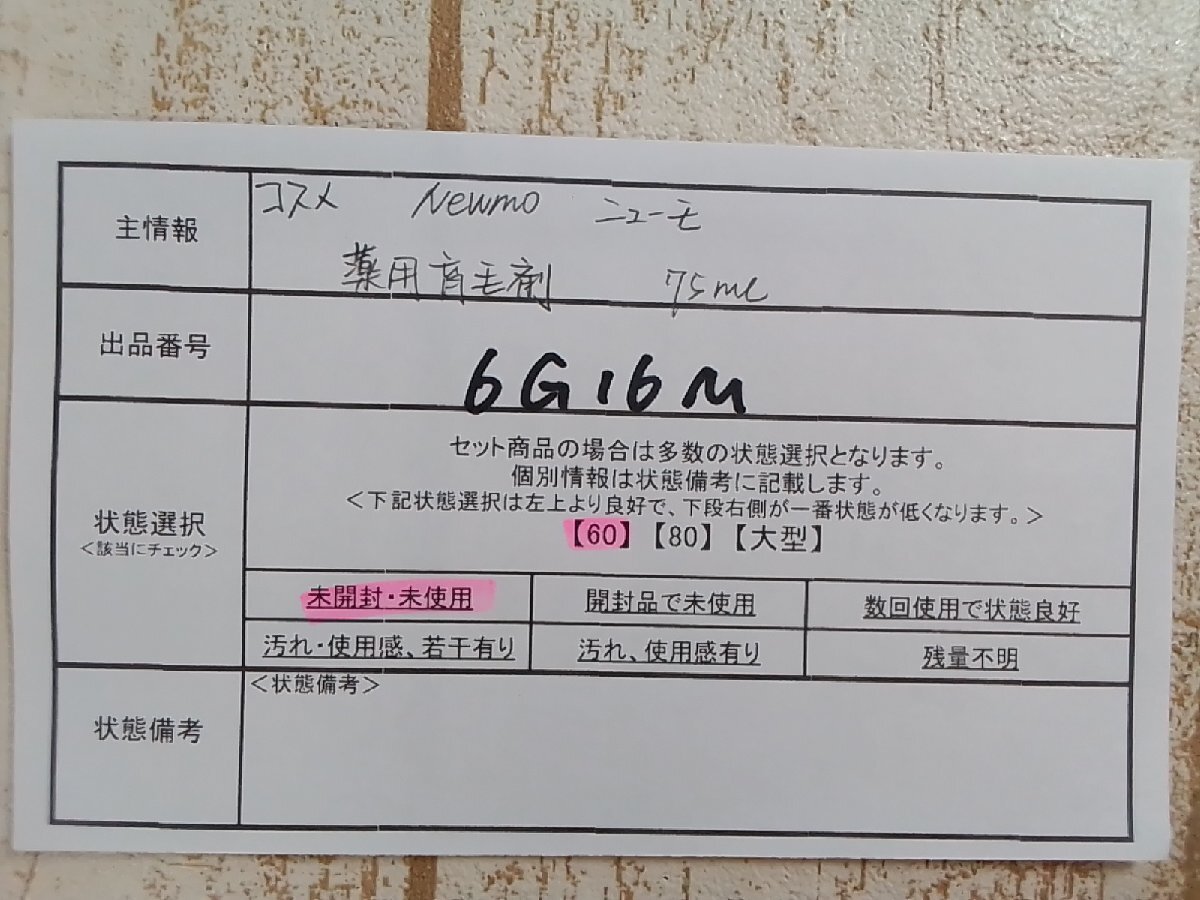 主情報
コスメ Newmo ニューモ
薬用育毛剤 75ml
出品番号
6G16M
状態選択
<該当にチェック>
セット商品の場合は多数の状態選択となります。
個別情報は状態備考に記載します。
<下記状態選択は左上より良好で、下段右側が一番状態が低くなります。>
【60】【80】【大型】
未開封・未使用 開封品で未使用 数回使用で状態良好
汚れ・使用感、若干有り 汚れ、使用感有り 残量不明
状態備考
<状態備考>